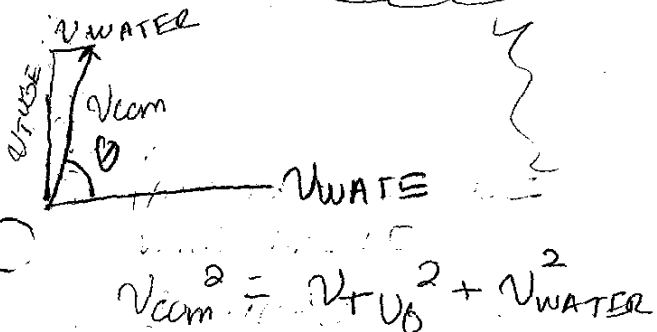 VWATER
VTUBE
Vcom
θ
VWATE
Vcom² = VTUB² + V²WATER